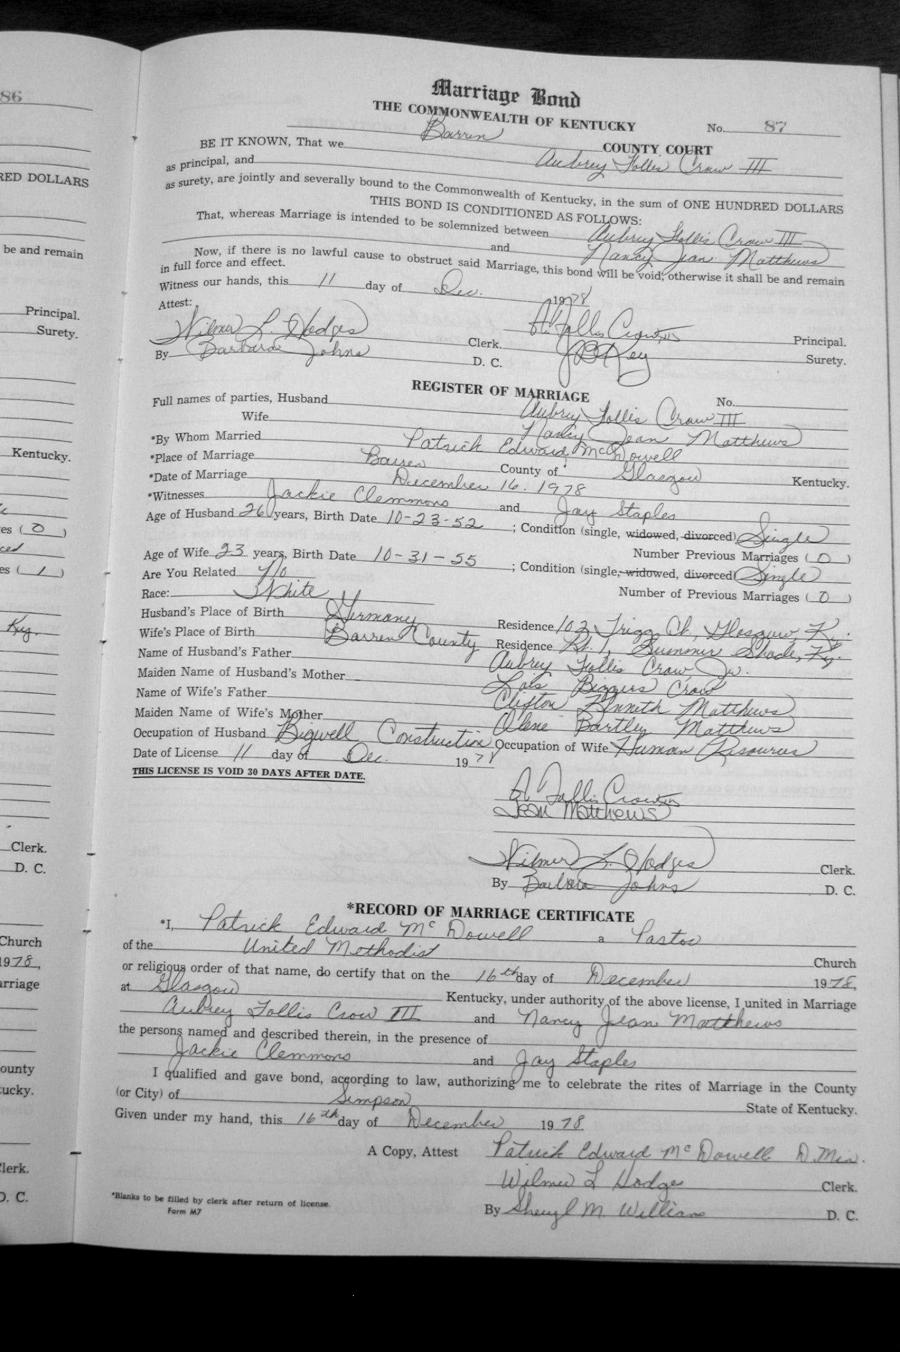 86
RED DOLLARS
be and remain
Principal.
Surety.
Kentucky.
es ( 0 )
ced
es ( 1 )
Ky.
Clerk.
D. C.
Church
1978,
arriage
ounty
ucky.
lerk.
D. C.
Marriage Bond
THE COMMONWEALTH OF KENTUCKY No. 87
BE IT KNOWN, That we Barren COUNTY COURT
as principal, and Aubrey Follis Crow III
as surety, are jointly and severally bound to the Commonwealth of Kentucky, in the sum of ONE HUNDRED DOLLARS
THIS BOND IS CONDITIONED AS FOLLOWS:
That, whereas Marriage is intended to be solemnized between Aubrey Follis Crow III
and Nancy Jean Matthews
Now, if there is no lawful cause to obstruct said Marriage, this bond will be void; otherwise it shall be and remain
in full force and effect.
Witness our hands, this 11 day of Dec. 1978
Attest:
Wilmer L. Hodges Clerk. A Follis Crow III Principal.
By Barbara Johns D. C. J B Key Surety.
REGISTER OF MARRIAGE No.
Full names of parties, Husband Aubrey Follis Crow III
Wife Nancy Jean Matthews
*By Whom Married Patrick Edward McDowell
*Place of Marriage Barren County of Glasgow Kentucky.
*Date of Marriage December 16. 1978
*Witnesses Jackie Clemmons and Jay Staples
Age of Husband 26 years, Birth Date 10-23-52 ; Condition (single, widowed, divorced) Single
Number Previous Marriages ( 0 )
Age of Wife 23 years, Birth Date 10-31-55 ; Condition (single, widowed, divorced Single
Are You Related No Number of Previous Marriages ( 0 )
Race: White
Husband's Place of Birth Germany Residence 103 Trigg Ct., Glasgow, Ky.
Wife's Place of Birth Barren County Residence Rt. 1, Summer Shade, Ky.
Name of Husband's Father Aubrey Follis Crow Jr.
Maiden Name of Husband's Mother Lois Biggers Crow
Name of Wife's Father Clifton Kenneth Matthews
Maiden Name of Wife's Mother Alene Bartley Matthews
Occupation of Husband Bigwell Construction Occupation of Wife Human Resources
Date of License 11 day of Dec. 1978
THIS LICENSE IS VOID 30 DAYS AFTER DATE.
A Follis Crow III
Jean Matthews
Wilmer L. Hodges Clerk.
By Barbara Johns D. C.
*RECORD OF MARRIAGE CERTIFICATE
*I, Patrick Edward McDowell a Pastor
of the United Methodist Church
or religious order of that name, do certify that on the 16th day of December 1978,
at Glasgow Kentucky, under authority of the above license, I united in Marriage
Aubrey Follis Crow III and Nancy Jean Matthews
the persons named and described therein, in the presence of
Jackie Clemmons and Jay Staples
I qualified and gave bond, according to law, authorizing me to celebrate the rites of Marriage in the County
(or City) of Simpson State of Kentucky.
Given under my hand, this 16th day of December 1978
A Copy, Attest Patrick Edward McDowell D. Min.
Wilmer L Hodge Clerk.
By Sheryl M. Williams D. C.
*Blanks to be filled by clerk after return of license.
Form M7